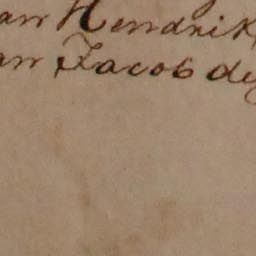 an Hendrik
an Jacob de